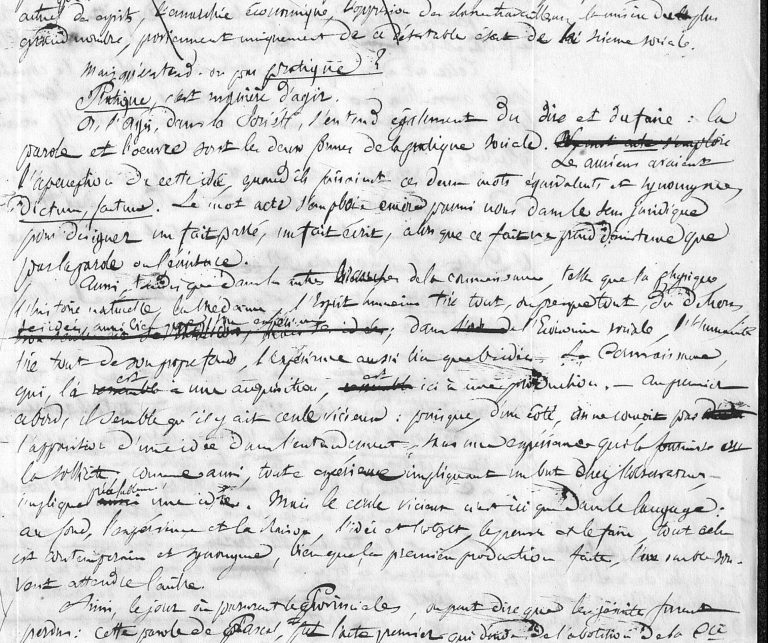 grand nombre, proviennent uniquement de ce détestable état de la science sociale.
Mais qu'entend-on par pratique ?
Pratique, c'est manière d'agir.
Or, l'agir, dans la Société, s'entend également du dire et du faire : la
parole et l'œuvre sont les deux formes de la pratique sociale.
Les anciens avaient
l'aperception de cette idée, quand ils faisaient ces deux mots équivalents et synonymes,
Dictum, factum. Le mot acte s'emploie encore parmi nous dans le sens juridique
pour désigner un fait passé, un fait écrit, alors que ce fait ne prend d'existence que
par la parole ou l'écriture.
Aussi, tandis que dans les autres branches de la connaissance, telle que la physique,
l'histoire naturelle, l'Esprit humain tire tout, ou presque tout, du dehors
dans de l'Economie sociale, l'humanité
tire tout de son propre fonds, l'expérience aussi bien que l'idée. La Connaissance,
qui, là est une acquisition, est ici une production. — Au premier
abord, il semble qu'il y ait cercle vicieux : puisque, d'un côté, on ne conçoit pas
l'apparition d'une idée dans l'entendement, sans une expérience qui la
la sollicite, comme aussi, toute expérience impliquant un but chez l'observateur,
implique une idée. Mais le cercle vicieux n'est ici que dans le langage :
au fond, l'expérience et la raison, l'idée et l'objet, le penser et le faire, tout cela
est contemporain et synonyme, bien que, la première production faite, l'une semble sou-
vent attendre l'autre.
Ainsi, le jour où parurent les Provinciales, on peut dire que les jésuites furent
perdus : cette parole de Pascal fut l'acte premier qui de l'abolition de la Cie